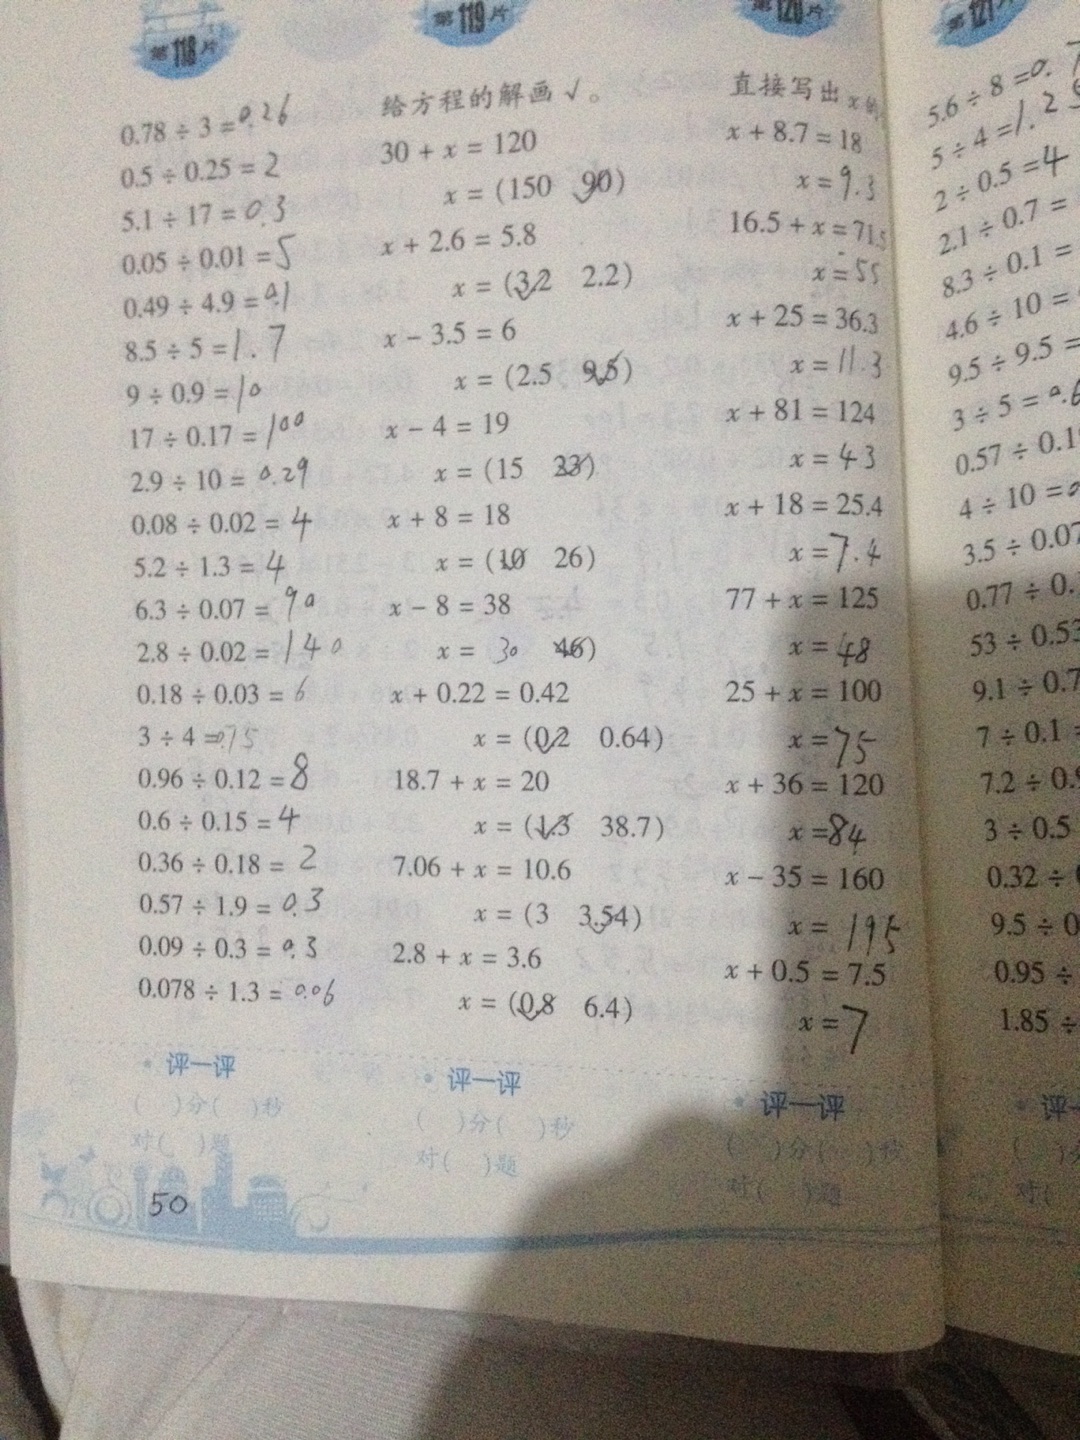 第118片
0.78 ÷ 3 = 0.26
0.5 ÷ 0.25 = 2
5.1 ÷ 17 = 0.3
0.05 ÷ 0.01 = 5
0.49 ÷ 4.9 = 0.1
8.5 ÷ 5 = 1.7
9 ÷ 0.9 = 10
17 ÷ 0.17 = 100
2.9 ÷ 10 = 0.29
0.08 ÷ 0.02 = 4
5.2 ÷ 1.3 = 4
6.3 ÷ 0.07 = 90
2.8 ÷ 0.02 = 140
0.18 ÷ 0.03 = 6
3 ÷ 4 = 0.75
0.96 ÷ 0.12 = 8
0.6 ÷ 0.15 = 4
0.36 ÷ 0.18 = 2
0.57 ÷ 1.9 = 0.3
0.09 ÷ 0.3 = 0.3
0.078 ÷ 1.3 = 0.06
评一评
( )分( )秒
对( )题
50
第119片
给方程的解画√。
30 + x = 120
x = (150 90)
x + 2.6 = 5.8
x = (3.2 2.2)
x − 3.5 = 6
x = (2.5 9.5)
x − 4 = 19
x = (15 23)
x + 8 = 18
x = (10 26)
x − 8 = 38
x = 30 46)
x + 0.22 = 0.42
x = (0.2 0.64)
18.7 + x = 20
x = (1.3 38.7)
7.06 + x = 10.6
x = (3 3.54)
2.8 + x = 3.6
x = (0.8 6.4)
评一评
( )分( )秒
对( )题
第120片
直接写出x的
x + 8.7 = 18
x = 9.3
16.5 + x = 71.5
x = 55
x + 25 = 36.3
x = 11.3
x + 81 = 124
x = 43
x + 18 = 25.4
x = 7.4
77 + x = 125
x = 48
25 + x = 100
x = 75
x + 36 = 120
x = 84
x − 35 = 160
x = 195
x + 0.5 = 7.5
x = 7
评一评
( )分( )秒
对( )题
第121片
5.6 ÷ 8 = 0.7
5 ÷ 4 = 1.25
2 ÷ 0.5 = 4
2.1 ÷ 0.7 =
8.3 ÷ 0.1 =
4.6 ÷ 10 =
9.5 ÷ 9.5 =
3 ÷ 5 = 0.6
0.57 ÷ 0.1
4 ÷ 10 = 0
3.5 ÷ 0.07
0.77 ÷ 0.
53 ÷ 0.53
9.1 ÷ 0.7
7 ÷ 0.1 =
7.2 ÷ 0.9
3 ÷ 0.5
0.32 ÷
9.5 ÷ 0
0.95 ÷
1.85 ÷
评一
( )
对(